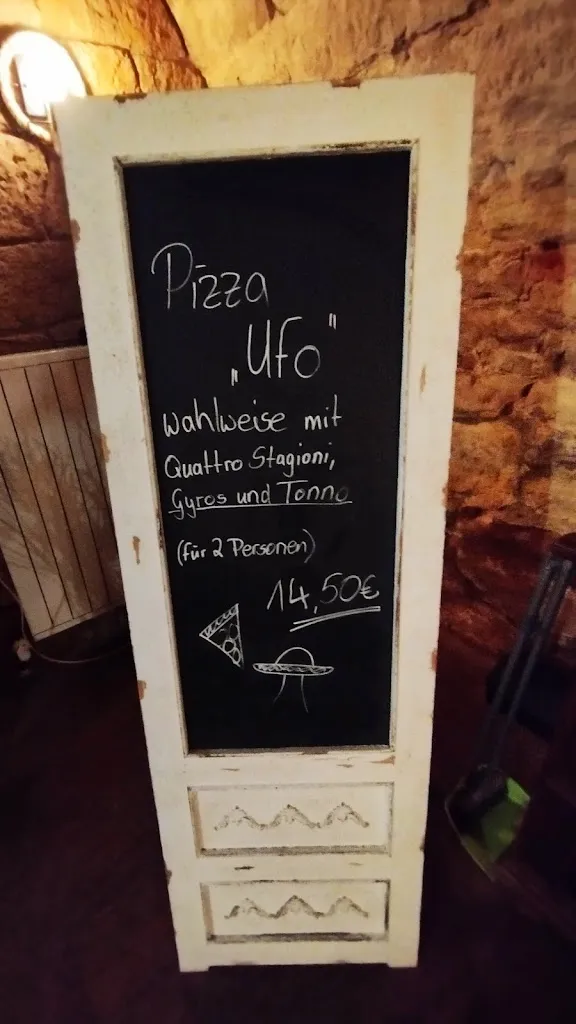 Pizza
„Ufo"
wahlweise mit
Quattro Stagioni,
Gyros und Tonno
(für 2 Personen)
14,50€